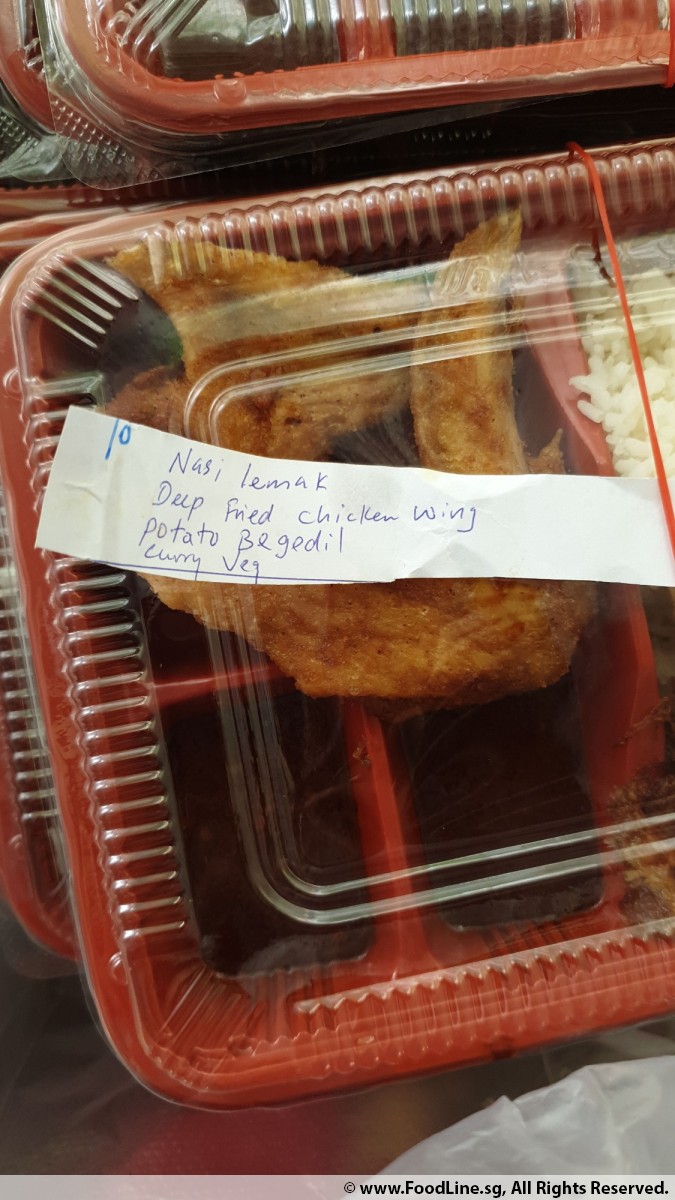 10
Nasi lemak
Deep fried chicken wing
potato Begedil
curry veg
© www.FoodLine.sg, All Rights Reserved.